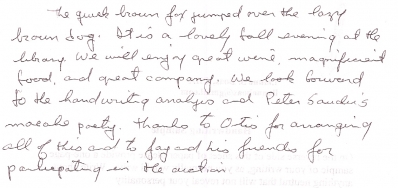 The quick brown fox jumped over the lazy
brown dog. It is a lovely fall evening at the
library. We will enjoy great wine, magnificent
food, and great company. We look forward
to the handwriting analysis and Peter Sauder's
macabe poetry. Thanks to Otis for arranging
all of this and to Jay and his friends for
participating in the auction